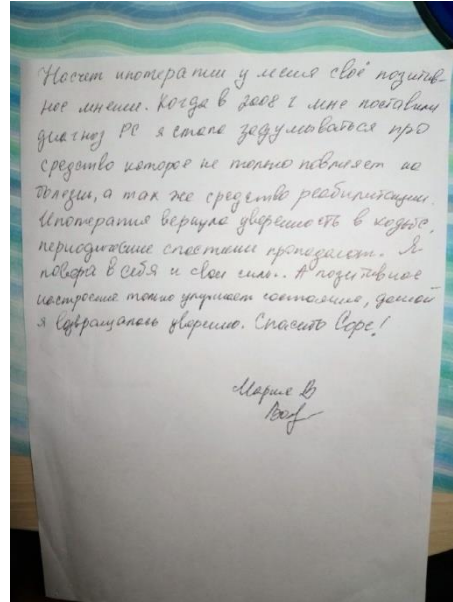 Насчет ипотерапии у меня своё позитив-
ное мнение. Когда в 2008 г мне поставили
диагноз РС я стала задумываться про
средство которое не только повлияет на
болезнь, а так же средство реабилитации.
Ипотерапия вернула уверенность в ходьбе,
спастики Я
в себя и свои силы.. А позитивное
настроение только улучшает состояние, домой
я возвращалась уверенно. Спасибо
Мария В